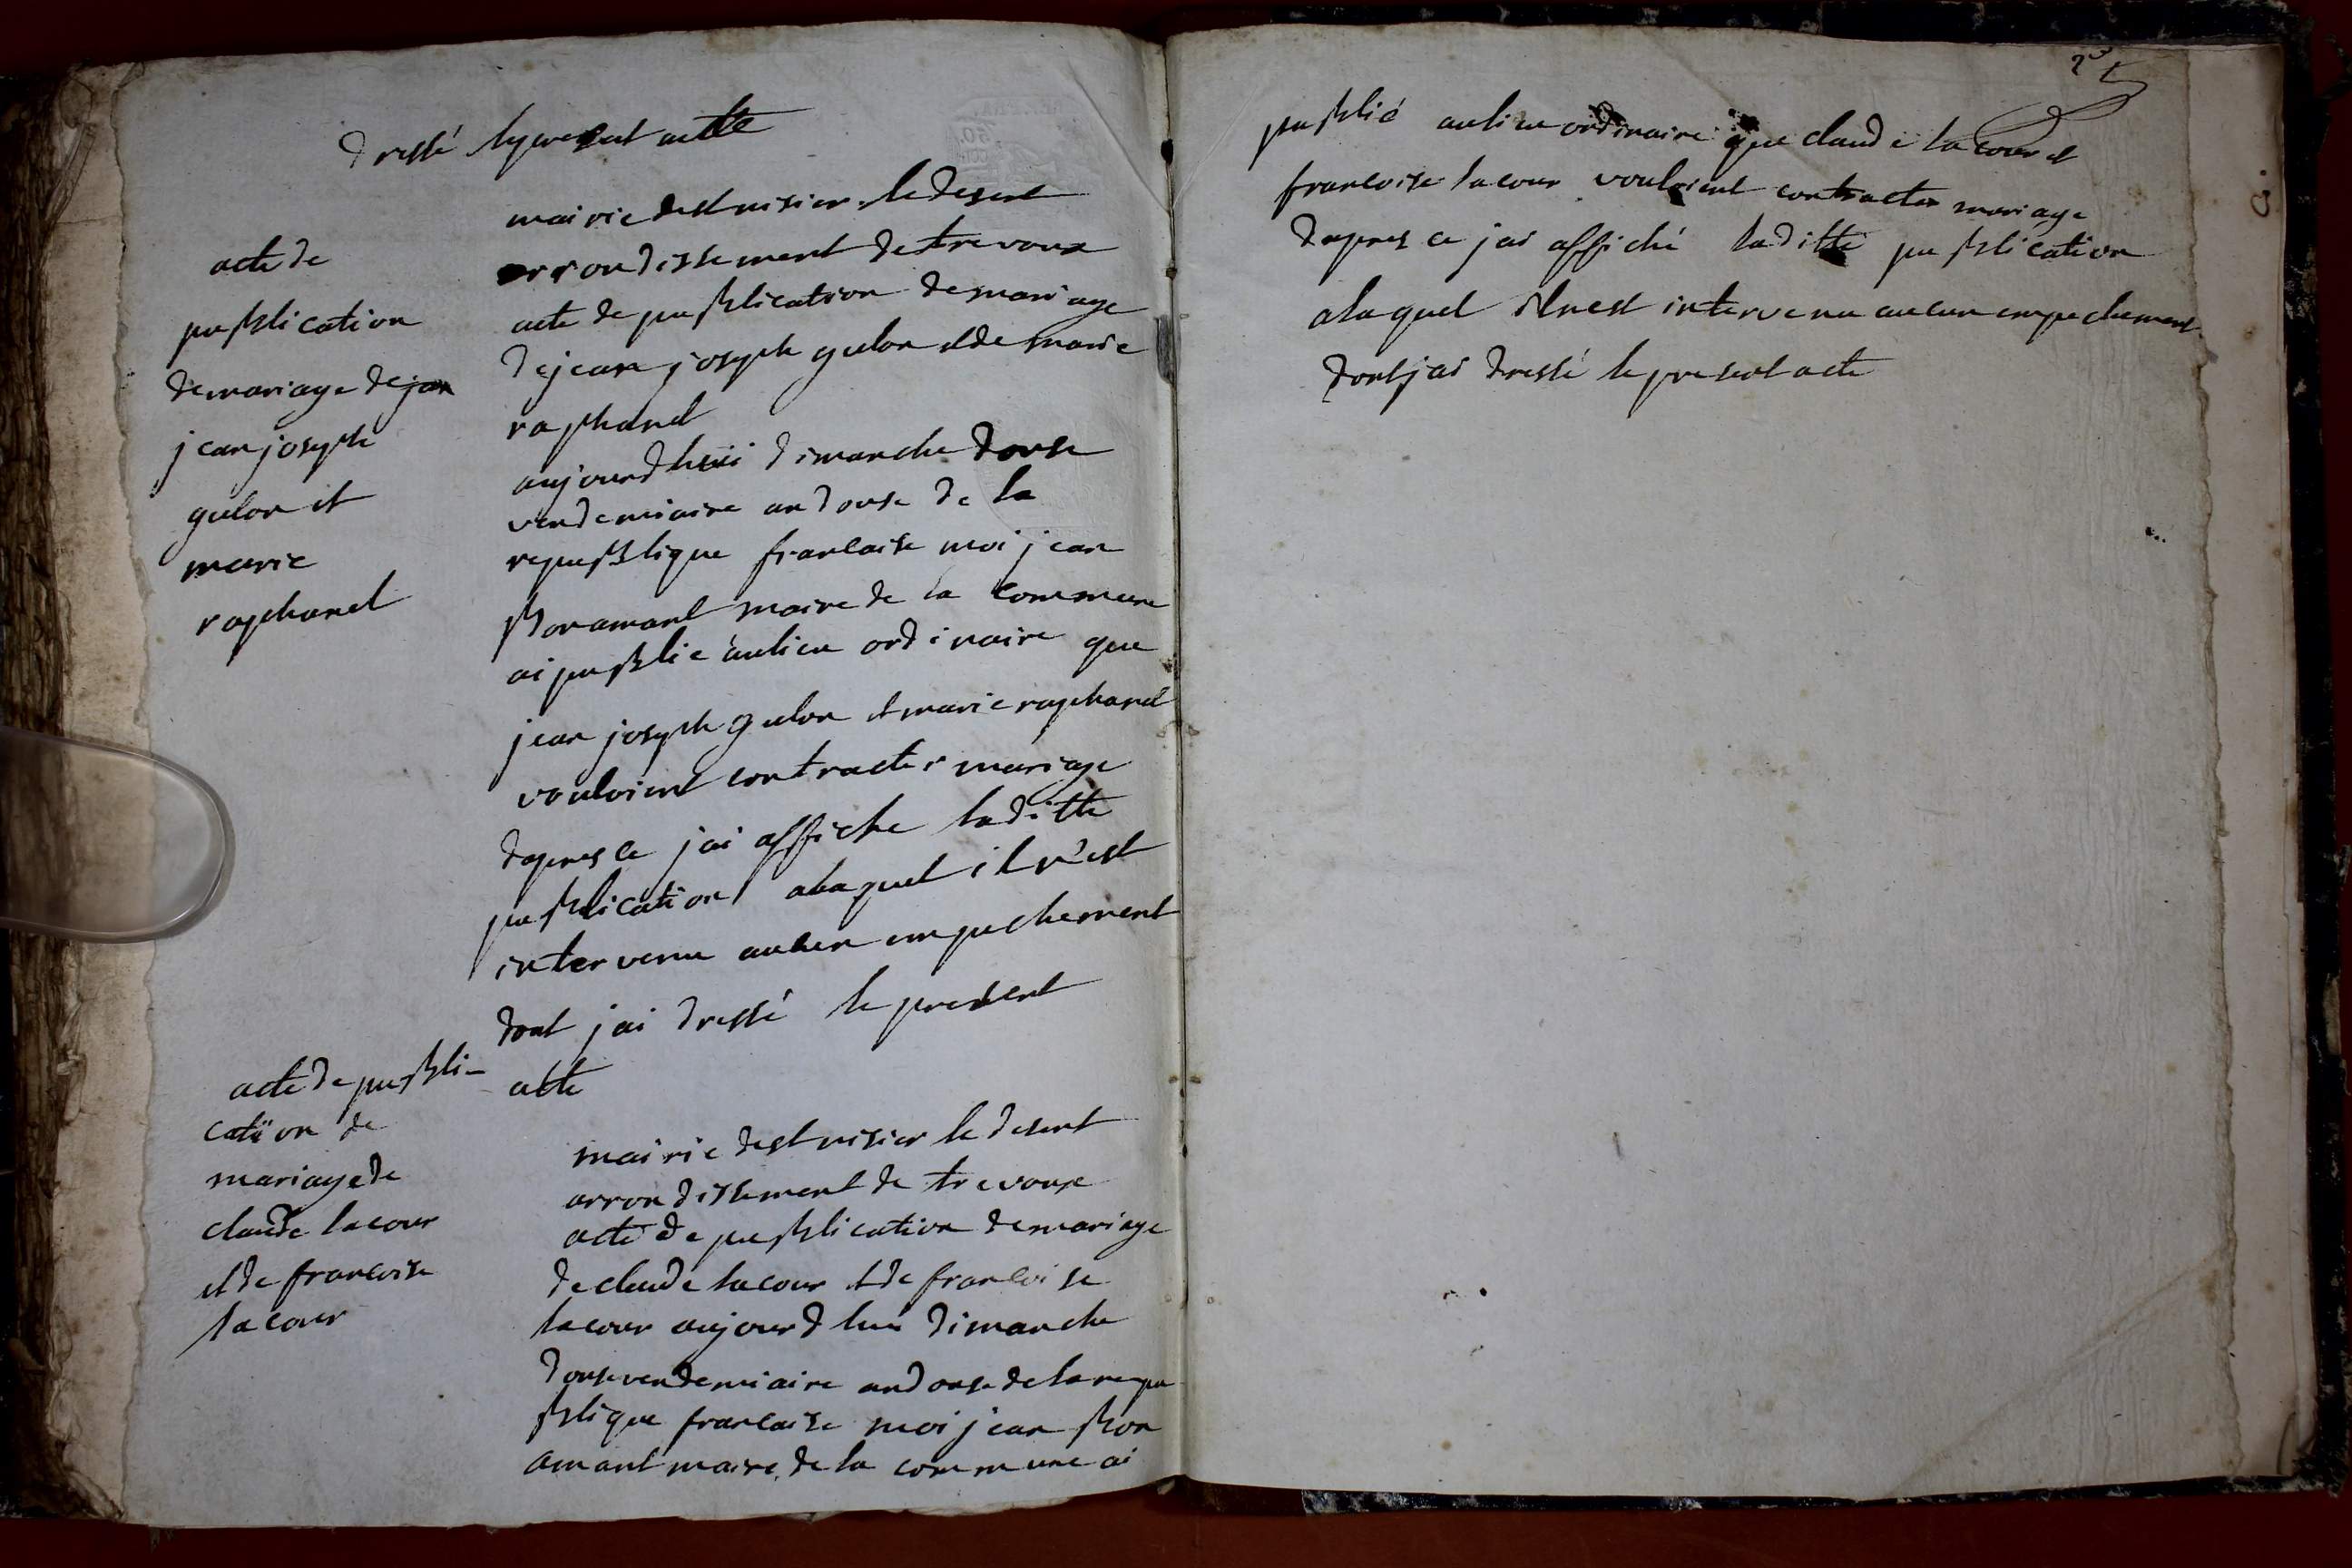 dressé le present actte
acte de
publication
de mariage de jan
jean joseph
gulon et
marie
raphanel
mairie de st nisier le desert
arrondissement de trevoux
acte de publication de mariage
de jean joseph gulon et de marie
raphanel
aujourdhuii dimanche douse
vendemiaire an douse de la
republique francaise moi jean
bonamant maire de la commune
ai publié aulieu ordinaire que
jean joseph gulon et marie raphanel
vouloient contracter mariage
dapres ce jai affiche laditte
publication alaquel il n'est
intervenu aucun empechement
dont jai dressé le present
actte
acte de publi-
catïon de
mariage de
claude lacour
et de francoise
lacour
mairie de st nisier le desert
arrondissement de trevoux
acte de publication de mariage
de claude lacour et de francoise
lacour aujourdhui dimanche
douse vendemiaire an douse de la repu
blique francaise moi jean bon
amant maire de la commune ai
publié aulieu ordinaire que claude lacour et
francoise lacour vouloient contracter mariage
dapres ce jai affiché laditte publication
alaquel il nest intervenu aucun empechement
dont jai dressé le present acte